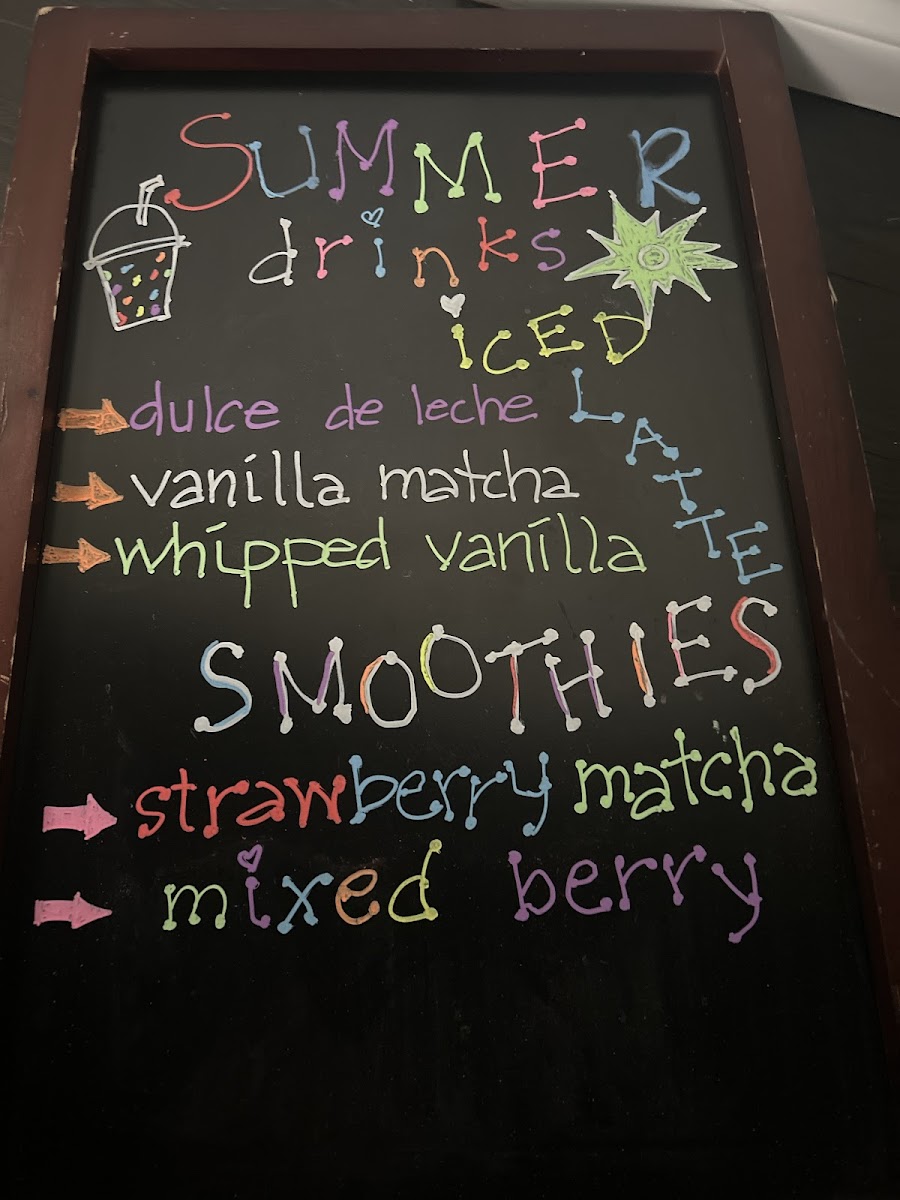 SUMMER
drinks
iCED
LATTE
dulce de leche
vanilla matcha
whipped vanilla
SMOOTHIES
strawberry matcha
mixed berry